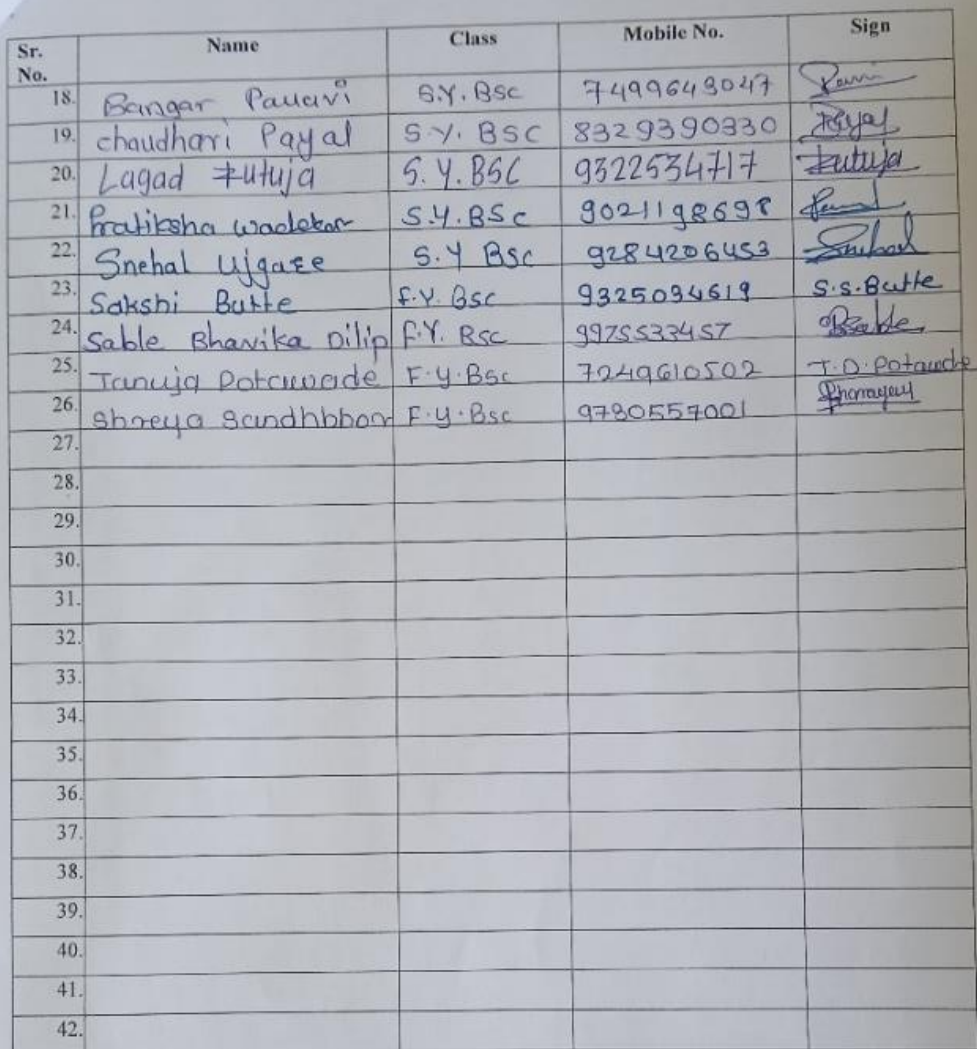 Sr. No. Name Class Mobile No. Sign
18. Bangar Pallavi S.Y. BSC 7499643047
19. chaudhari Payal S.Y. BSC 8329390330 Payal
20. Lagad Rutuja S.Y.BSC 9322534717 Rutuja
21. Pratiksha wadekar S.Y.BSc 9021198698
22. Snehal Ujgare S.Y BSC 9284206453 Snehal
23. Sakshi Butte F.Y. BSC 9325094619 S.S.Butte
24. Sable Bhavika Dilip F.Y. BSC 9975533457 Bsable
25. Tanuja Potawade F.Y.BSC 7249610502 T.D.Potawade
26. Shreya F.Y.Bsc 9730557001
27.
28.
29.
30.
31.
32.
33.
34.
35.
36.
37.
38.
39.
40.
41.
42.